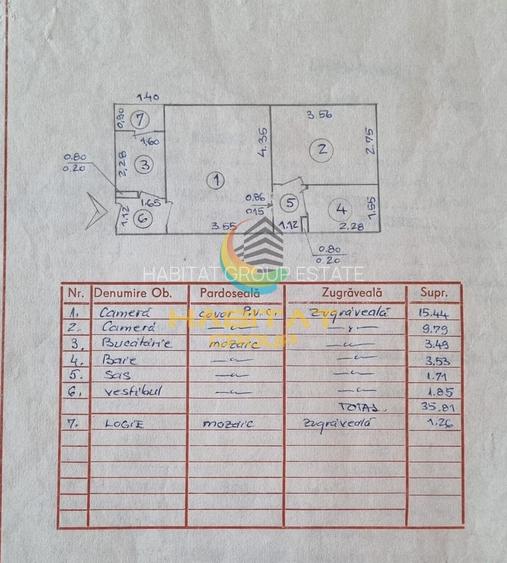 1.40
0,90
7
1,60
3.56
4.35
2
2.75
0.80
0.20
2,28
3
1
1.65
0,86
015
5
4
1.55
1.12
6
3.55
1.12
2.28
0.80
0.20
HABITAT GROUP ESTATE
Nr. Denumire Ob. Pardoseală Zugrăveală Supr.
1. Cameră covor P.v.c. Zugrăveală 15.44
2. Cameră 9.79
3. Bucătărie mozaic 3.49
4. Baie 3,53
5. Sas 1.71
6. vestibul 1.85
TOTAL 35.81
7. LOGIE mozaic Zugrăveală 1.26
HABITAT